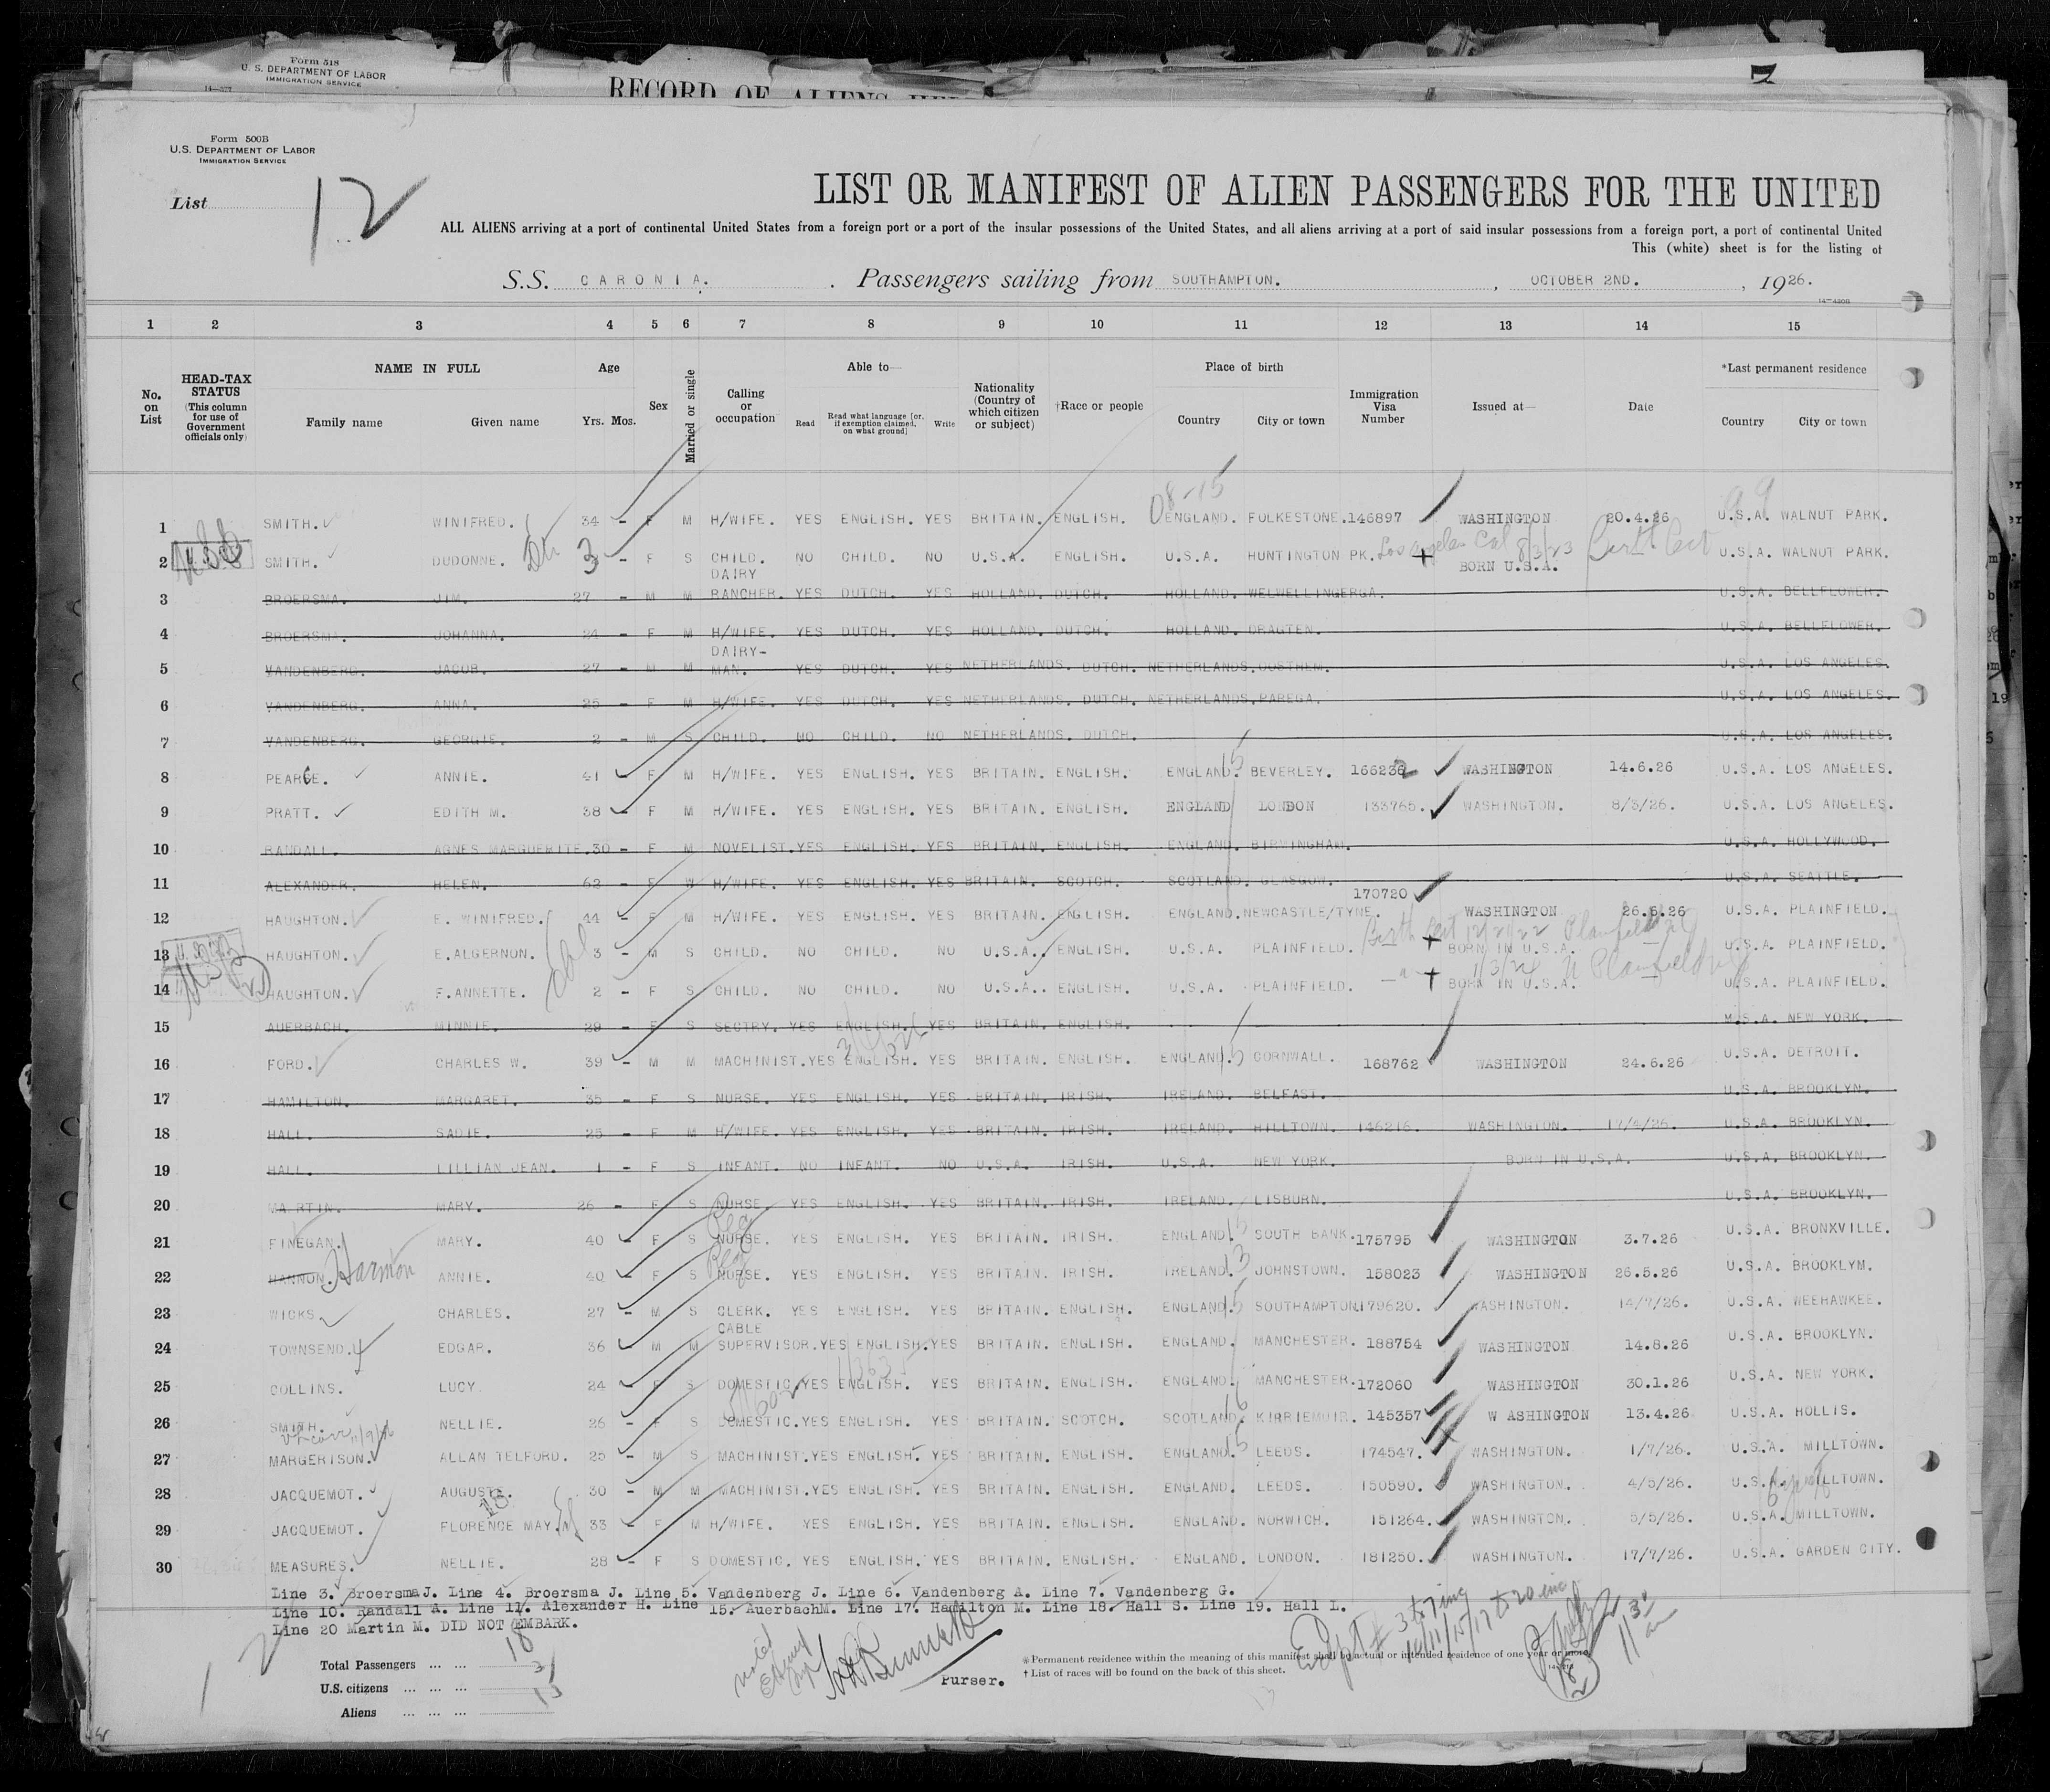 Form 518
U. S. DEPARTMENT OF LABOR
IMMIGRATION SERVICE
RECORD OF ALIENS HELD
Form 500B
U.S. DEPARTMENT OF LABOR
IMMIGRATION SERVICE
List 12
LIST OR MANIFEST OF ALIEN PASSENGERS FOR THE UNITED
ALL ALIENS arriving at a port of continental United States from a foreign port or a port of the insular possessions of the United States, and all aliens arriving at a port of said insular possessions from a foreign port, a port of continental United
This (white) sheet is for the listing of
S.S. CARONIA. Passengers sailing from SOUTHAMPTON. , OCTOBER 2ND. , 1926.
1 2 3 4 5 6 7 8 9 10 11 12 13 14 15
No. on List
HEAD-TAX STATUS (This column for use of Government officials only)
NAME IN FULL Family name Given name
Age Yrs. Mos.
Sex
Married or single
Calling or occupation
Able to— Read Read what language [or, if exemption claimed, on what ground] Write
Nationality (Country of which citizen or subject)
†Race or people
Place of birth Country City or town
Immigration Visa Number
Issued at—
Date
*Last permanent residence Country City or town
08-15 99
1 SMITH. WINIFRED. 34 - F M H/WIFE. YES ENGLISH. YES BRITAIN. ENGLISH. ENGLAND. FOLKESTONE. 146897 WASHINGTON 20.4.26 U.S.A. WALNUT PARK.
Los Angeles Cal 8/3/23 Birth Cert
2 USC SMITH. DUDONNE. Dtr 3 - F S CHILD. NO CHILD. NO U.S.A. ENGLISH. U.S.A. HUNTINGTON PK. BORN U.S.A. U.S.A. WALNUT PARK.
3 BROERSMA. JIM. 27 - M M DAIRY RANCHER. YES DUTCH. YES HOLLAND. DUTCH. HOLLAND. WELWELLINGERGA. U.S.A. BELLFLOWER.
4 BROERSMA. JOHANNA. 24 - F M H/WIFE. YES DUTCH. YES HOLLAND. DUTCH. HOLLAND. DRAGTEN. U.S.A. BELLFLOWER.
5 VANDENBERG. JACOB. 27 - M M DAIRY-MAN. YES DUTCH. YES NETHERLANDS. DUTCH. NETHERLANDS. OOSTHEM. U.S.A. LOS ANGELES.
6 VANDENBERG. ANNA. 25 - F M H/WIFE. YES DUTCH. YES NETHERLANDS. DUTCH. NETHERLANDS. PAREGA. U.S.A. LOS ANGELES.
7 VANDENBERG. GEORGIE. 2 - M S CHILD. NO CHILD. NO NETHERLANDS. DUTCH. U.S.A. LOS ANGELES.
8 PEARCE. ANNIE. 41 - F M H/WIFE. YES ENGLISH. YES BRITAIN. ENGLISH. ENGLAND. 15 BEVERLEY. 166232 WASHINGTON 14.6.26 U.S.A. LOS ANGELES.
9 PRATT. EDITH M. 38 - F M H/WIFE. YES ENGLISH. YES BRITAIN. ENGLISH. ENGLAND LONDON 133765. WASHINGTON. 8/3/26. U.S.A. LOS ANGELES.
10 RANDALL. AGNES MARGUERITE. 30 - F M NOVELIST. YES ENGLISH. YES BRITAIN. ENGLISH. ENGLAND. BIRMINGHAM. U.S.A. HOLLYWOOD.
11 ALEXANDER. HELEN. 62 - F W H/WIFE. YES ENGLISH. YES BRITAIN. SCOTCH. SCOTLAND. GLASGOW. U.S.A. SEATTLE.
12 HAUGHTON. E. WINIFRED. 44 - F M H/WIFE. YES ENGLISH. YES BRITAIN. ENGLISH. ENGLAND. NEWCASTLE/TYNE. 170720 WASHINGTON 26.6.26 U.S.A. PLAINFIELD.
Birth Cert 12/20/22 Plainfield NJ
13 HAUGHTON. E. ALGERNON. 3 - M S CHILD. NO CHILD. NO U.S.A. ENGLISH. U.S.A. PLAINFIELD. BORN IN U.S.A. U.S.A. PLAINFIELD.
1/3/24 N Plainfield NJ
14 HAUGHTON. F. ANNETTE. 2 - F S CHILD. NO CHILD. NO U.S.A. ENGLISH. U.S.A. PLAINFIELD. BORN IN U.S.A. U.S.A. PLAINFIELD.
15 AUERBACH. MINNIE. 29 - F S SECTRY. YES ENGLISH. YES BRITAIN. ENGLISH. U.S.A. NEW YORK.
16 FORD. CHARLES W. 39 - M M MACHINIST. YES ENGLISH. YES BRITAIN. ENGLISH. ENGLAND. 15 CORNWALL. 168762 WASHINGTON 24.6.26 U.S.A. DETROIT.
17 HAMILTON. MARGARET. 35 - F S NURSE. YES ENGLISH. YES BRITAIN. IRISH. IRELAND. BELFAST. U.S.A. BROOKLYN.
18 HALL. SADIE. 25 - F M H/WIFE. YES ENGLISH. YES BRITAIN. IRISH. IRELAND. HILLTOWN. 146216. WASHINGTON. 17/4/26. U.S.A. BROOKLYN.
19 HALL. LILLIAN JEAN. 1 - F S INFANT. NO INFANT. NO U.S.A. IRISH. U.S.A. NEW YORK. BORN IN U.S.A. U.S.A. BROOKLYN.
20 MARTIN. MARY. 26 - F S NURSE. YES ENGLISH. YES BRITAIN. IRISH. IRELAND. LISBURN. U.S.A. BROOKLYN.
21 FINEGAN. MARY. 40 - F S NURSE. YES ENGLISH. YES BRITAIN. IRISH. ENGLAND. 15 SOUTH BANK. 175795 WASHINGTON 3.7.26 U.S.A. BRONXVILLE.
22 HANNON. Harmon ANNIE. 40 - F S NURSE. YES ENGLISH. YES BRITAIN. IRISH. IRELAND. 13 JOHNSTOWN. 158023 WASHINGTON 26.5.26 U.S.A. BROOKLYM.
23 WICKS. CHARLES. 27 - M S CLERK. YES ENGLISH. YES BRITAIN. ENGLISH. ENGLAND. 15 SOUTHAMPTON 179620. WASHINGTON. 14/7/26. U.S.A. WEEHAWKEE.
24 TOWNSEND. EDGAR. 36 - M M CABLE SUPERVISOR. YES ENGLISH. YES BRITAIN. ENGLISH. ENGLAND. MANCHESTER. 188754 WASHINGTON 14.8.26 U.S.A. BROOKLYN.
25 COLLINS. LUCY. 24 - F S DOMESTIC. YES ENGLISH. YES BRITAIN. ENGLISH. ENGLAND. MANCHESTER. 172060 WASHINGTON 30.1.26 U.S.A. NEW YORK.
26 SMITH. NELLIE. 26 - F S DOMESTIC. YES ENGLISH. YES BRITAIN. SCOTCH. SCOTLAND. 16 KIRRIEMUIR. 145357 W ASHINGTON 13.4.26 U.S.A. HOLLIS.
27 MARGERISON. ALLAN TELFORD. 25 - M S MACHINIST. YES ENGLISH. YES BRITAIN. ENGLISH. ENGLAND. 15 LEEDS. 174547. WASHINGTON. 1/7/26. U.S.A. MILLTOWN.
28 JACQUEMOT. AUGUSTE. 30 - M M MACHINIST. YES ENGLISH. YES BRITAIN. ENGLISH. ENGLAND. LEEDS. 150590. WASHINGTON. 4/5/26. U.S.A. MILLTOWN.
29 JACQUEMOT. FLORENCE MAY. 33 - F M H/WIFE. YES ENGLISH. YES BRITAIN. ENGLISH. ENGLAND. NORWICH. 151264. WASHINGTON. 5/5/26. U.S.A. MILLTOWN.
30 MEASURES. NELLIE. 28 - F S DOMESTIC. YES ENGLISH. YES BRITAIN. ENGLISH. ENGLAND. LONDON. 181250. WASHINGTON. 17/7/26. U.S.A. GARDEN CITY.
Line 3. Broersma J. Line 4. Broersma J. Line 5. Vandenberg J. Line 6. Vandenberg A. Line 7. Vandenberg G.
Line 10. Randall A. Line 11. Alexander H. Line 15. Auerbach M. Line 17. Hamilton M. Line 18. Hall S. Line 19. Hall L.
Line 20 Martin M. DID NOT EMBARK.
Total Passengers ... ... 18
U.S. citizens ... ... ... 3
Aliens ... ... ... 15
Purser.
Except # 3 to 7 inc
10/11/15/17 to 20 inc
* Permanent residence within the meaning of this manifest shall be actual or intended residence of one year or more.
† List of races will be found on the back of this sheet.